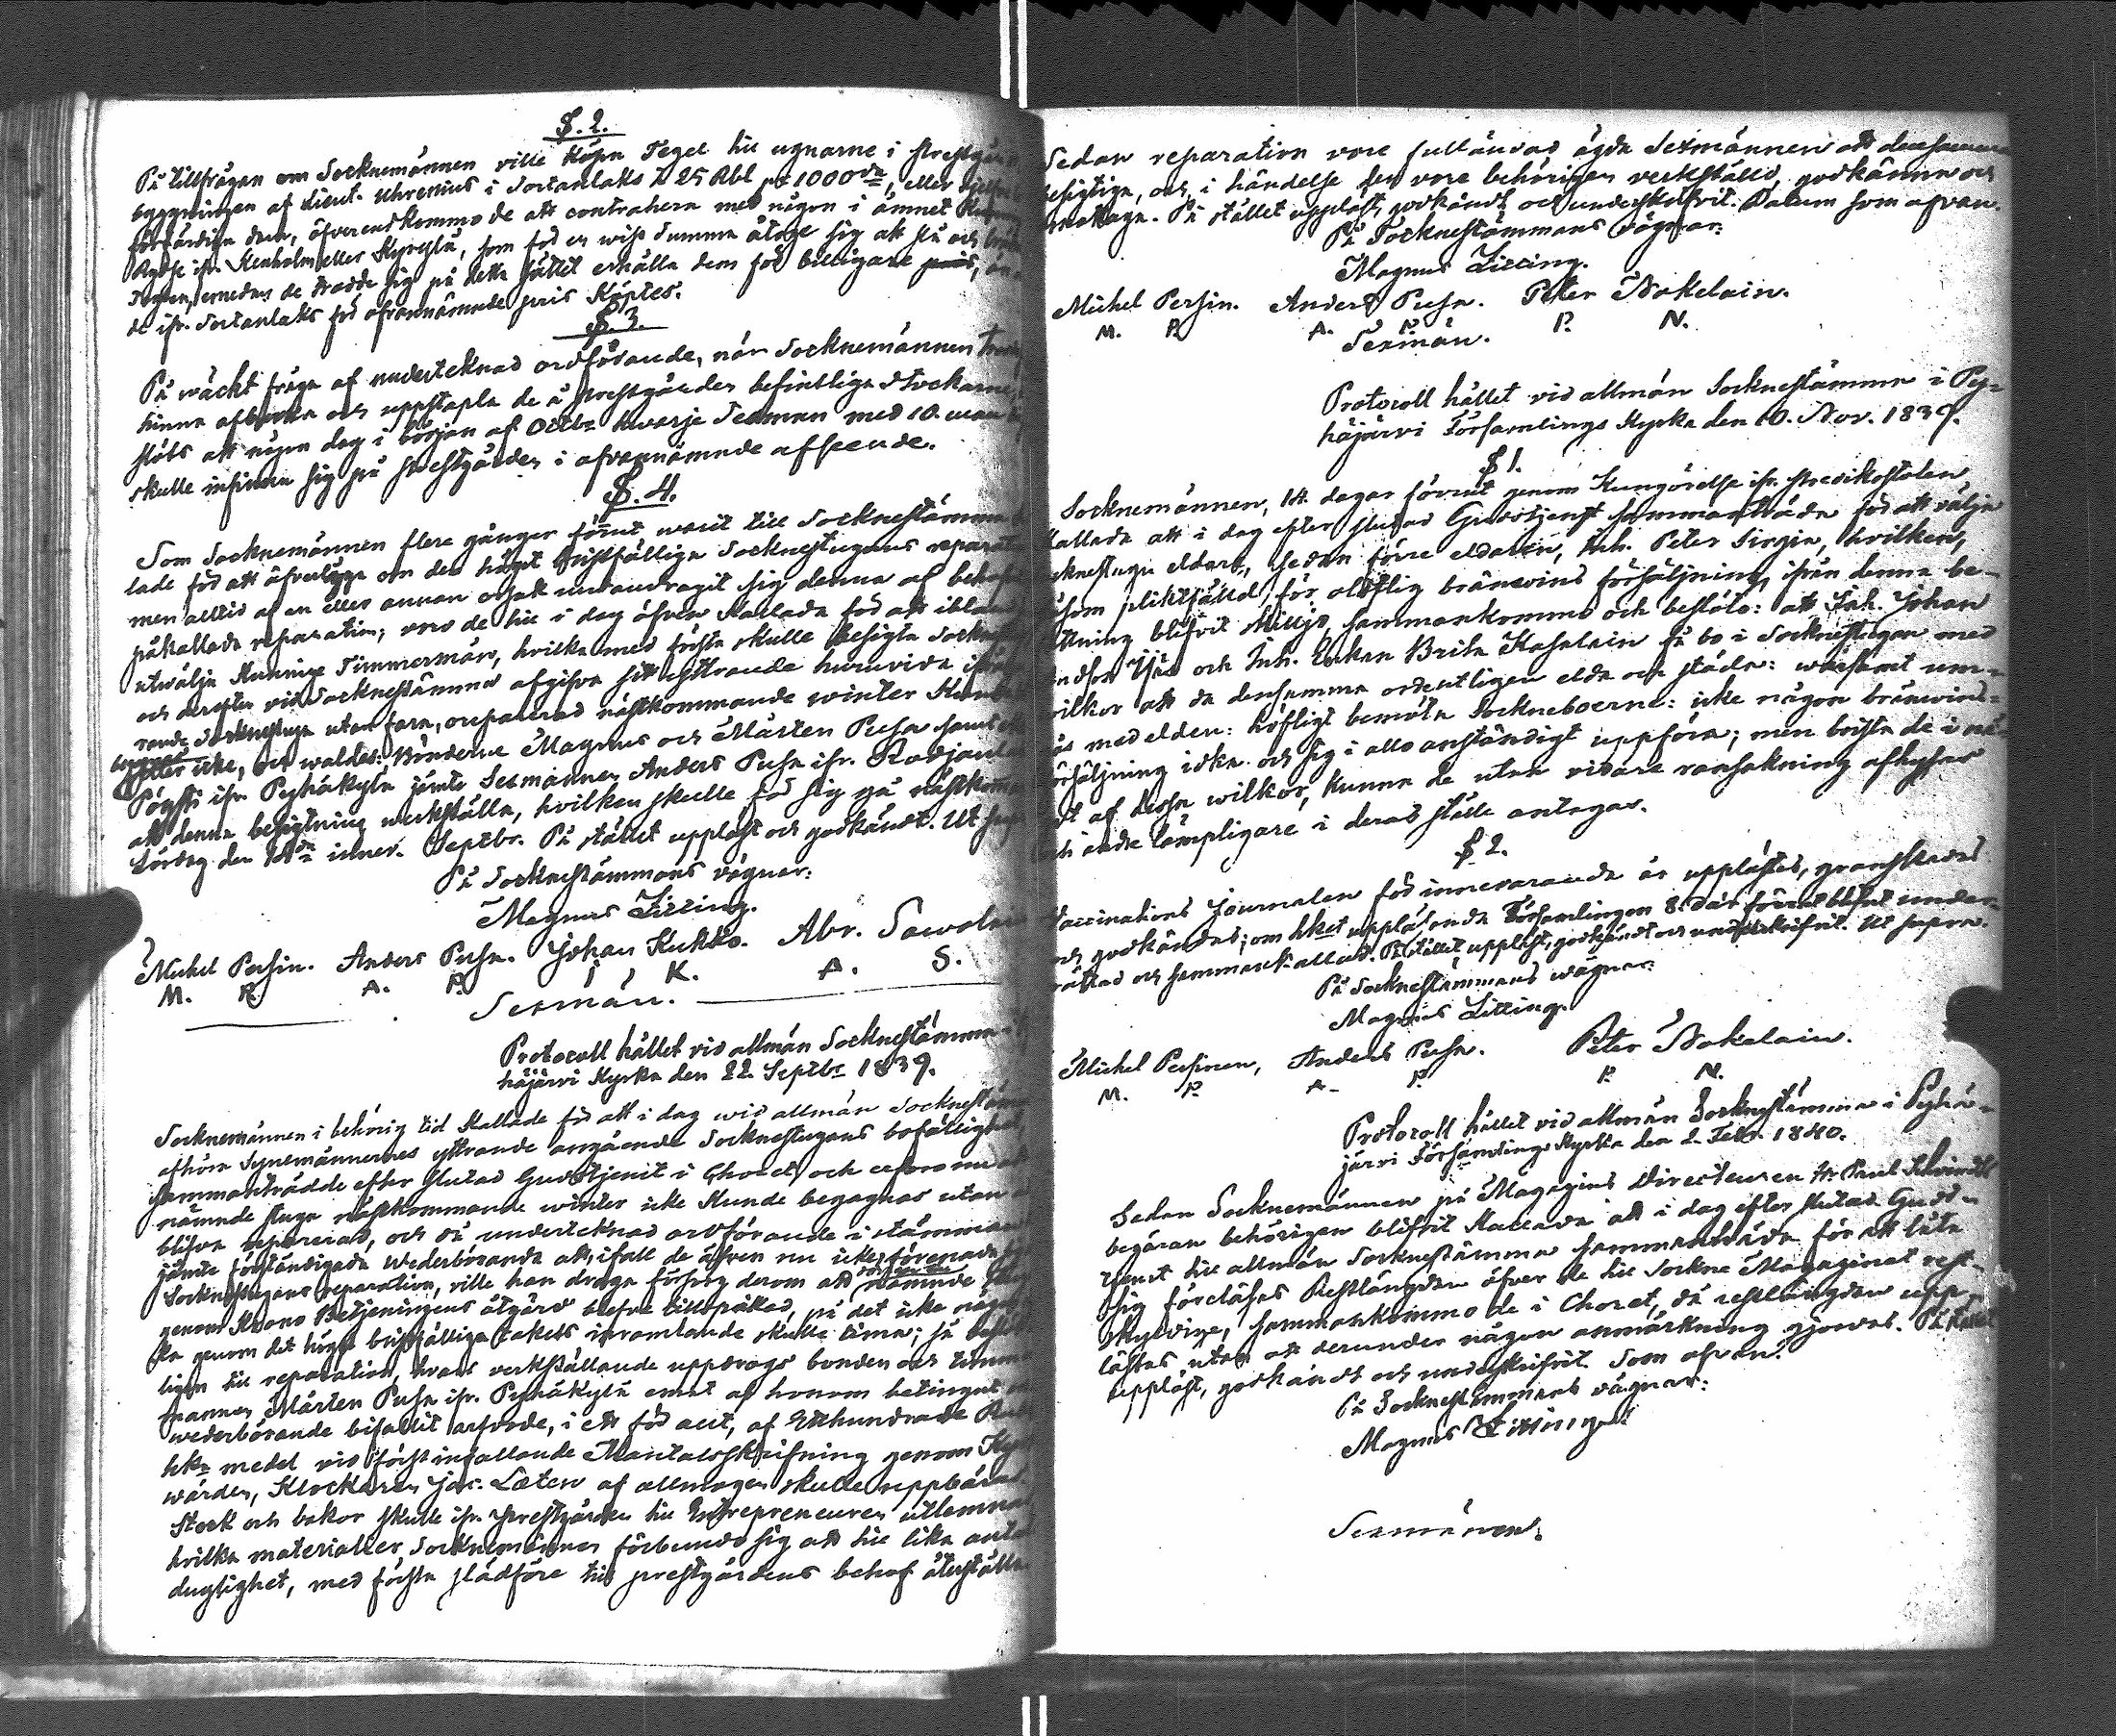 §. 2.
På tillfrågan om Socknemännen ville köpa Tegel till ugnarne i Prestgårds
byggningen af Lieut. Uhrenius i Sortanlaks à 25 Rbl pr 1000de, eller sjelfva
förfärdiga dem, öfverenskommo de att contrahera med någon i ämnet kunnig
Rysse ifr. Kexholm eller Kyrkylä, som för en wiss summa åtoge sig att slå och bränna
Teglen, emedan de trodde sig på detta sättet erhålla dem för billigare pris, än
de ifr. Sortanlaks för ofvannämnde pris köptes.
§ 3.
På wäckt fråga af undertecknad ordförande, när Socknemännen
hinna afbarka och uppstapla de å Prestgården befintliga Stockarne,
slöts att någon dag i början af Octbr hvarje Sexman med 10. man
skulle infinna sig på Prestgården i ofvannämnde afseende.
§. 4.
Som Socknemännen flere gånger förut warit till Sockne­stämma
lade för att öfverlägga om den högst bristfälliga Sockne­stugans reparation
men alltid af en eller annan orsak undandragit sig denna af behofvet
påkallade reparation; voro de till i dag äfven kallade för att ibland
utwälja kunnige Timmermän, hvilka med första skulle besigta Sockne
och derefter vid Socknestämma afgifva sitt yttrande huruvida
rande Socknestuga utan fara, oreparerad nästkommande winter kunde
begagnas
eller icke, och waldes: Bönderne Magnus och Mårten Pusa samt
Pöysti ifr. Pyhäkylä jämte Sexmannen Anders Pusa ifr.
att denna besigtning werkställa, hvilken skulle för sig gå nästkommande
Lördag den 14de innev. Septbr. På stället uppläst och godkändt. Ut supra
På Socknestämmans vägnar:
Magnus Litzing.
Michel Persin. Anders Pusa. Johan Kukko. Abr. Sawolain
M. P. A. P. J. K. A. S.
Sexmän.
Protocoll hållet vid allmän Socknestämma i Py
häjärvi Kyrka den 22. Septbr 1839.
Socknemännen i behörig tid kallade för att i dag wid allmän Socknestämma
afhöra Synemännernes yttrande angående Socknestugans bofällighet
sammanträdde efter slutad Gudstjenst i Choret, och
nämnde stuga nästkommande winter icke kunde begagnas utan att
blifva reparerad, och då undertecknad ordförande i stämman
jämte förständigade wederbörande att, ifall de äfven nu icke förenade
Socknestugans reparation, ville han draga försorg derom att nämnde
genom Krono Betjeningens åtgärd blefve tillspikad, på det icke någon
ka genom det högst bristfälliga takets inramlande skulle tima; så
ligen till reparation, hvars verkställande uppdrogs bonden och timmer
mannen Mårten Pusa ifr. Pyhäkylä emot af honom betingat
wederbörande bifallit arfvode, i ett för allt, af Etthundrade
hka medel vid först infallande Mantalsskrifning genom Kyrko
wärden, Klockaren Jac. Læten af allmogen skulle uppbäras.
Stock och bakor skulle ifr. Prestgården till Entrepreneuren utlemnas
hvilka materialier Socknemännen förbundo sig att till lika antal
duglighet, med första slädföre till prestgårdens behof återställa
Sedan reparation vore fulländad ägde Sexmännen att densamma
besigtiga, och i händelse den vore behörigen verkställd, godkänna och
mottaga. På stället uppläst, godkändt och underskrifvit. Datum som ofvan.
På Socknestämmans vägnar:
Magnus Litzing.
Michel Persin. Anders Pusa. Peter Nokelain.
M. P. A. P. P. N.
Sexmän.
Protocoll hållet vid allmän Socknestämma i Py=
häjärvi Församlings Kyrka den 10. Nov. 1839.
§ 1.
Socknemännen, 14. dagar förrut genom kungörelse ifr. Predikostolen
kallade att i dag efter slutad Gudstjenst sammanträda för att välja
Socknestugu eldare, sedan förre eldaren, Inh. Peter Sirgin, hvilken,
såsom pliktfälld för olaflig bränvins försäljning, ifrån denna be-
fattning blifvit skilljd, sammankommo och beslöto: att Inh. Johan
och Inh. Enkan Brita Kaselain få bo i Socknestugan med
vilkor att de densamma ordentligen elda och städa: warsamt um=
gås med elden: höfligt bemöta Sockneboerne: icke någon bränvins=
försäljning idka och sig i allo anständigt uppföra; men brista de i nå=
got af dessa wilkor, kunna de utan vidare ransakning afhysas
och andre lämpligare i deras ställe antagas.
§ 2.
Vaccinations Journalen för innevarande år upplästes, granskades
och godkändes; om hket uppläsande Församlingen 8. dar förrut blifvit under=
rättad och sammankallad. På stället uppläst, godkändt och underskrifvit. Ut supra.
På Socknestämmans wägnar:
Magnus Litzing.
Michel Persinen, Anders Pusa. Peter Nokelain.
M. P. A. P. P. N.
Protocoll hållet vid allmän Socknestämma i Pyhä=
järvi Församlings Kyrka den 2. Febr. 1840.
Sedan Socknemännen på Magazins Directeuren Hr Paul
begäran behörigen blifvit kallade att i dag efter slutad Guds=
tjenst till allmän Socknestämma sammanträda för att låta
sig föreläsas Restlängden öfver de till Sockne Magazinet rest-
skyldige, sammankommo de i Choret, då restlängden upp-
lästes utan att derunder någon anmärkning gjordes. På stället
uppläst, godkändt och underskrifvit. Som ofvan.
På Socknestämmans vägnar:
Magnus Litzing
Sexmännen.